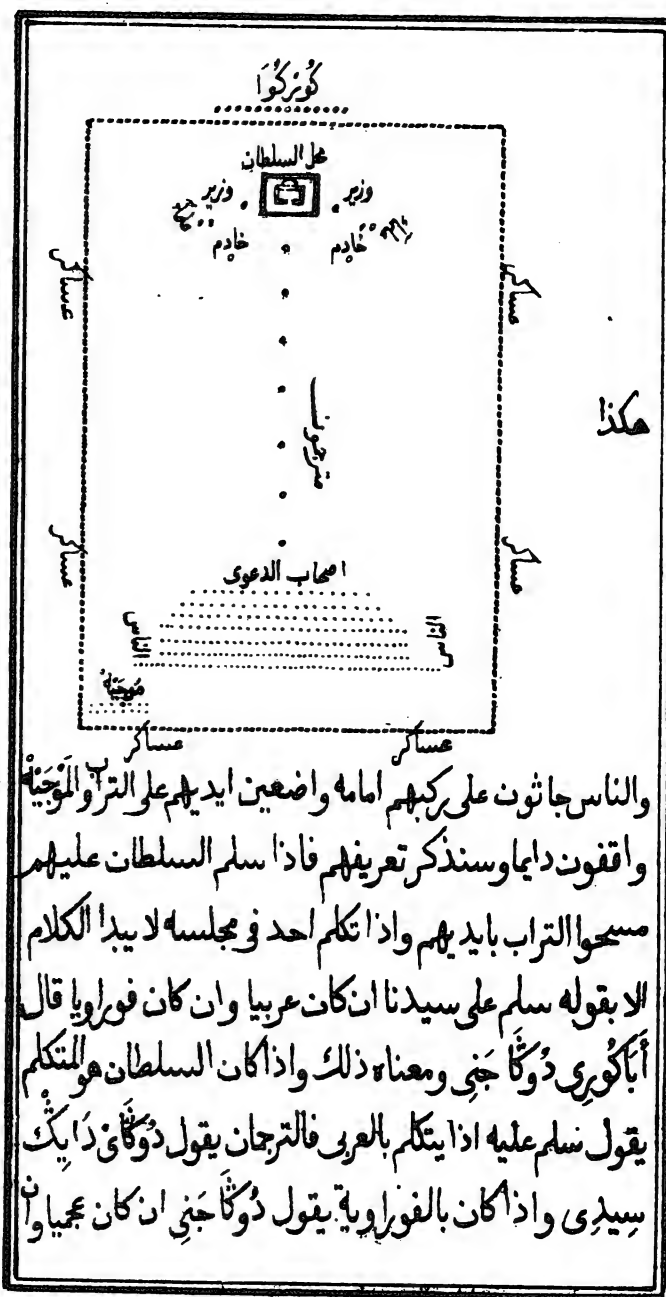 كُوركُوَا
محل السلطان
وزير
وزير
خادم
خادم
عساكر
عساكر
هكذا
مترجمون
عساكر
عساكر
اصحاب الدعوى
الناس
الناس
مَوجَيْه
عساكر
عساكر
والناس جاثون على ركبهم امامه واضعين ايديهم على التراب والمَوْجَيْهْ
واقفون دايما وسنذكر تعريفهم فاذا سلم السلطان عليهم
مسحوا التراب بايديهم واذا تكلم احد فى مجلسه لا يبدا الكلام
الا بقوله سلم على سيدنا ان كان عربيا وان كان فوراويا قال
أَبَاكُورِى دُوكَا جَنِى ومعناه ذلك واذا كان السلطان هو المتكلم
يقول نسلم عليه اذا يتكلم بالعربى فالترجمان يقول
سِيدِى واذا كان بالفوراوية يقول دُوكَا جَنِى ان كان عجميا وان